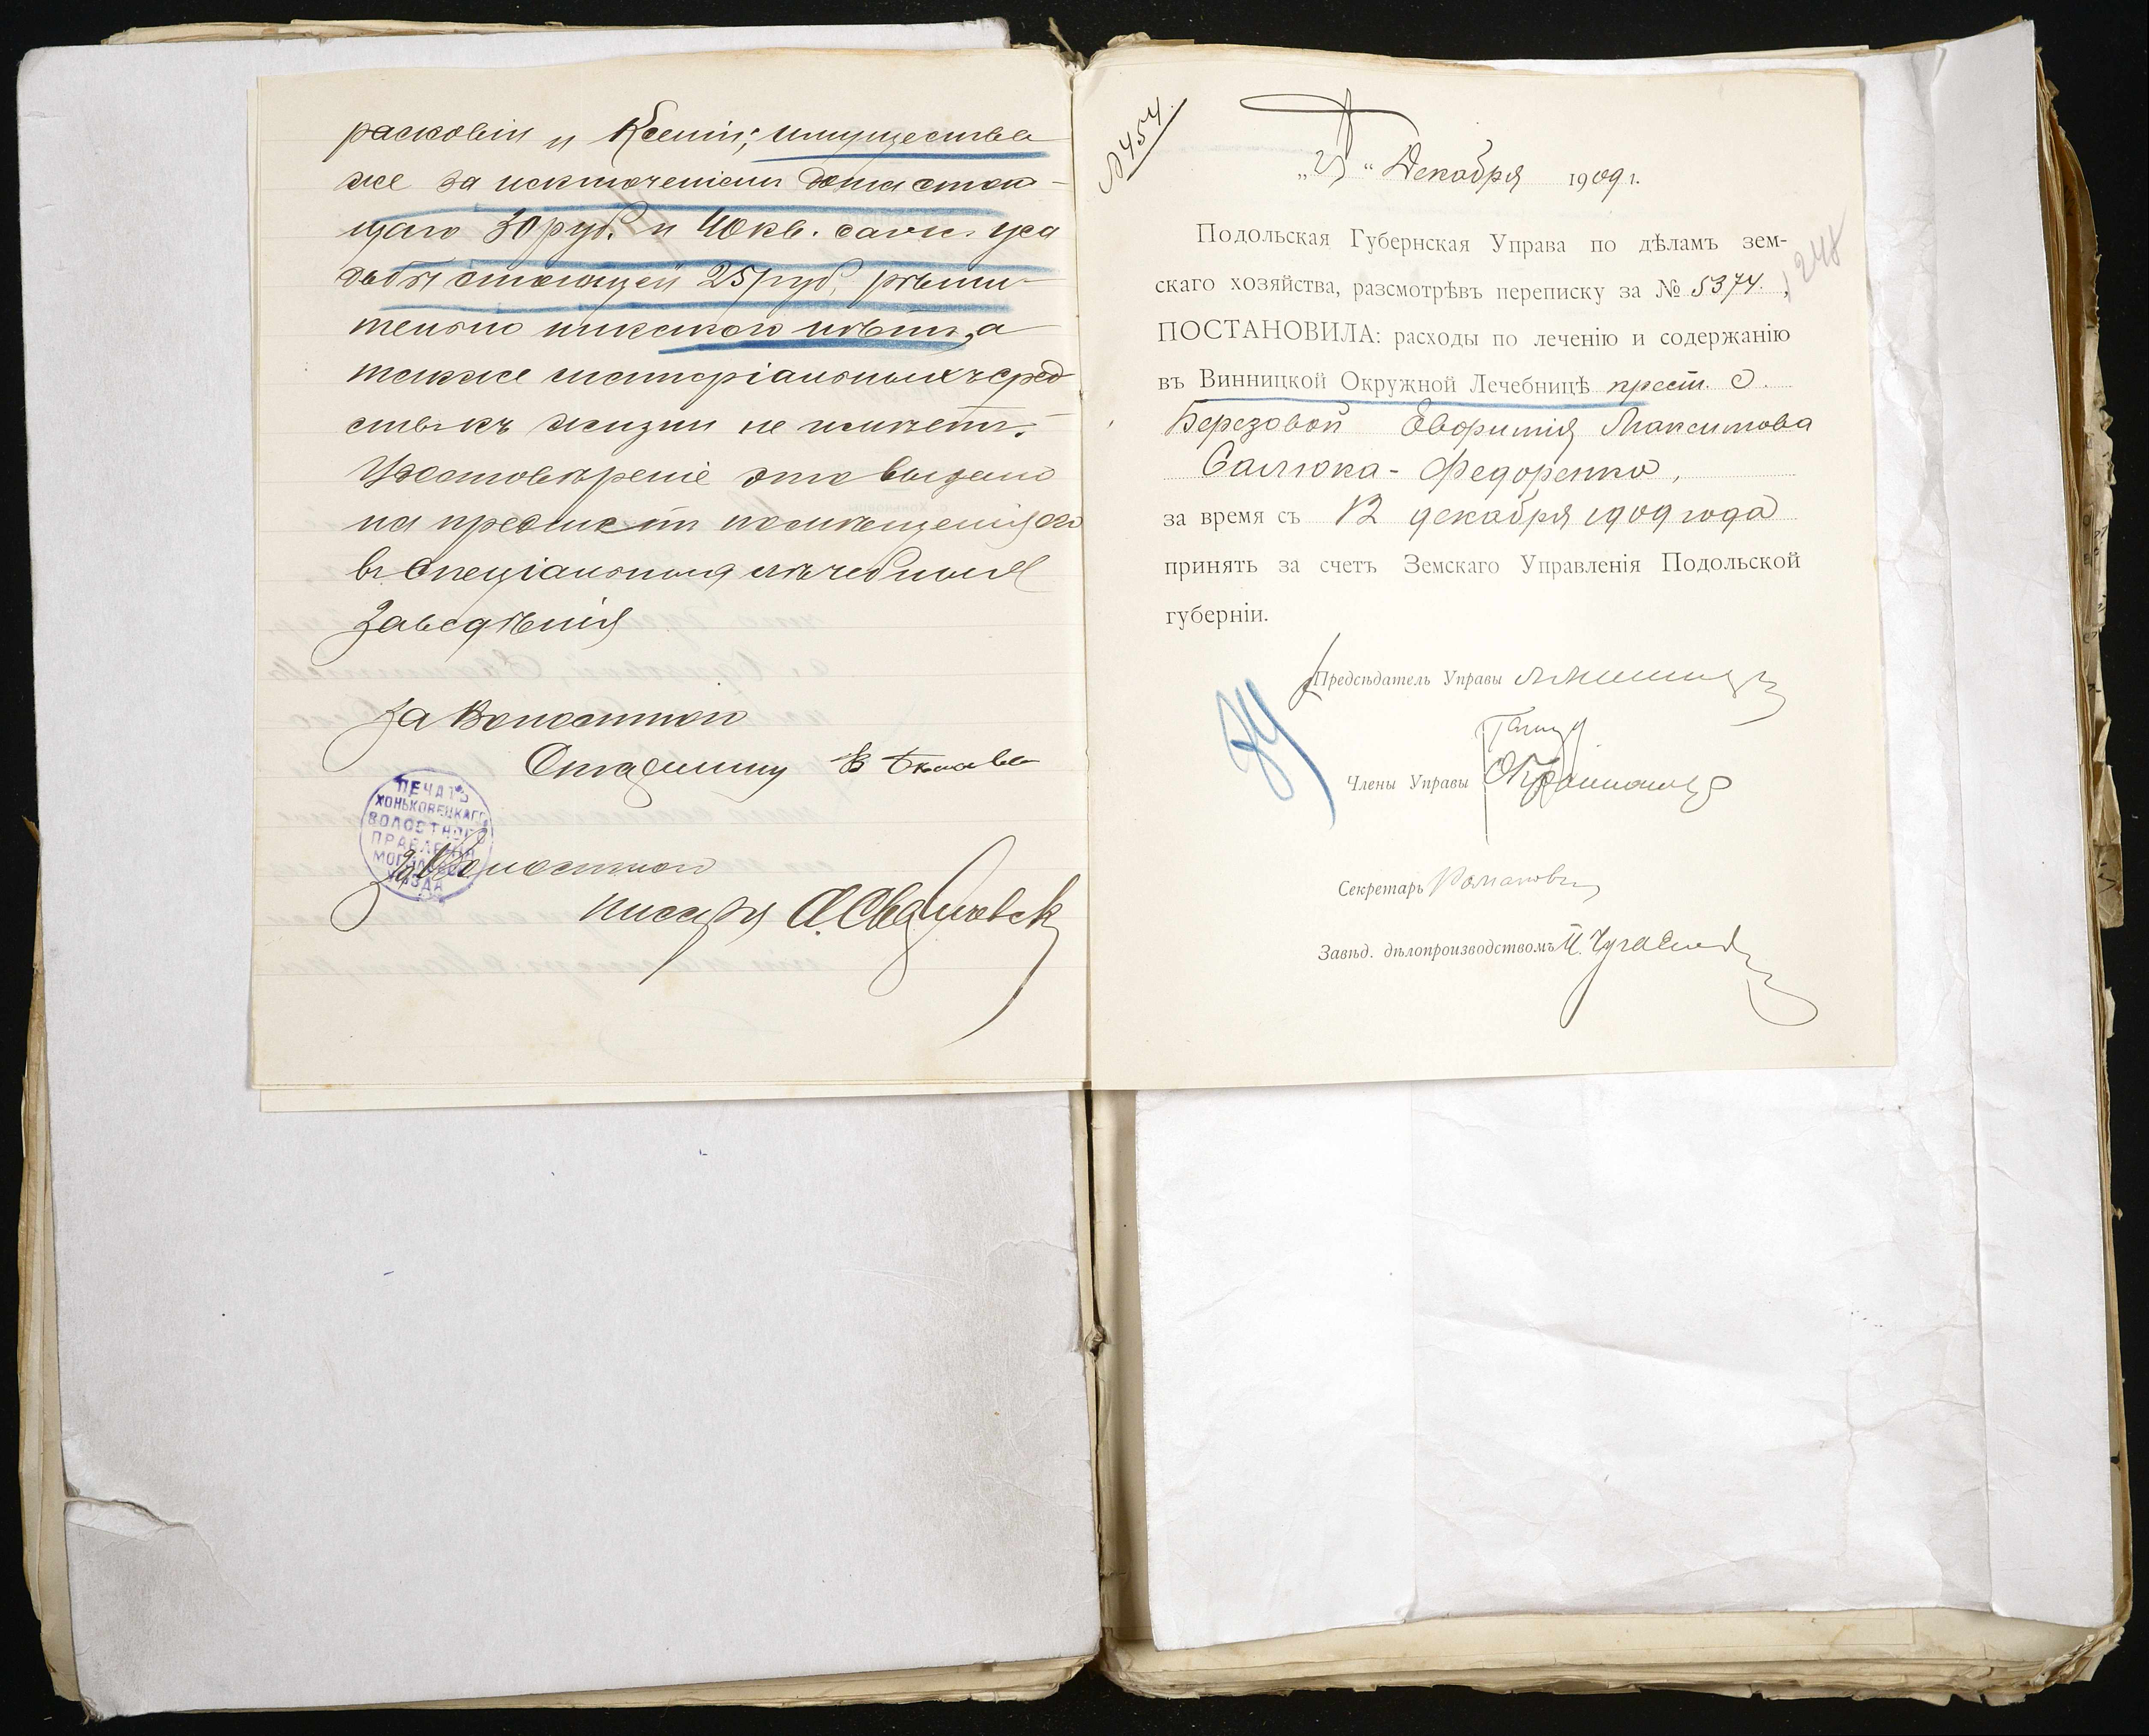 расковіи и Ксеніи; имущества
же за исключеніемъ дома стою-
щаго 30 руб. и 40 кв. саж. уса
дьбы стоющей 25 руб. рѣши-
тельно никакого нѣтъ, а
также матеріальныхъ сред
ствъ къ жизни не имѣетъ.
Удостовѣреніе это выдано
на предметъ помѣщенія его
въ спеціальныя лѣчебныя
Заведѣнія
За Волостного
Старшину
ПЕЧАТЬ
ХОНЬКОВЕЦКАГО
ВОЛОСТНОГО
ПРАВЛЕНІЯ
УѢЗДА
За Волостного
писаря
№ 454.
Декабря 1909 г.
248
Подольская Губернская Управа по дѣламъ зем-
скаго хозяйства, разсмотрѣвъ переписку за № 5374.,
ПОСТАНОВИЛА: расходы по леченію и содержанію
въ Винницкой Окружной Лечебницѣ крест. с.
Березовой Евфимія Максимова
Салюка-Федоренко,
за время съ 12 декабря 1909 года
принять за счетъ Земскаго Управленія Подольской
губерніи.
Предсѣдатель Управы
Члены Управы
Секретарь Романовъ
Завѣд. дѣлопроизводствомъ